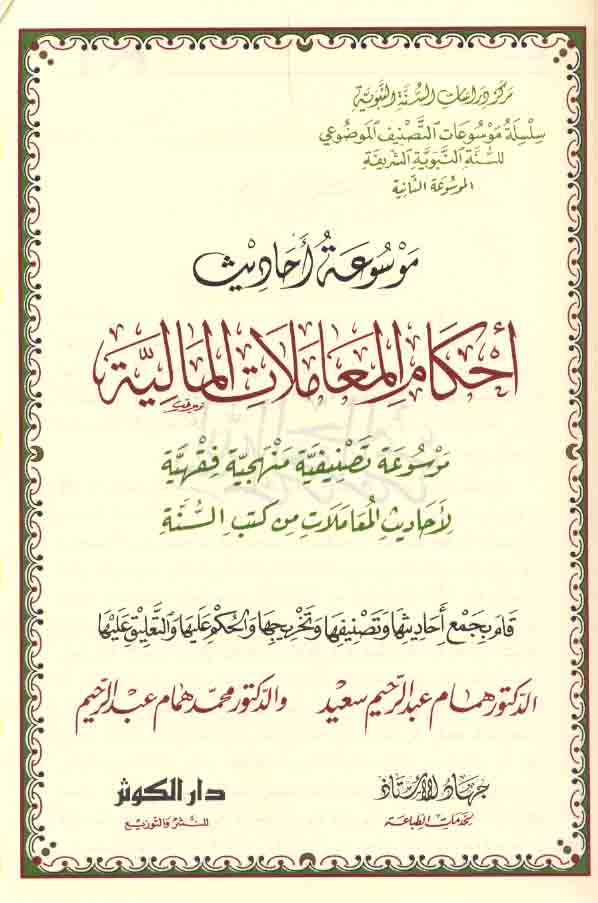 مركز دراسات السنة النبوية
سلسلة موسوعات التصنيف الموضوعي
للسنة النبوية الشريفة
الموسوعة الثانية
مَوْسُوعَةُ أَحَادِيْث
أَحْكَامِ المُعَامَلَاتِ المَالِيَّة
مَوْسُوعَة تَصْنِيفِيَّة مَنْهَجِيَّة فِقْهِيَّة
لِأَحَادِيثِ المُعَامَلَاتِ مِن كُتُبِ السُّنَّةِ
قَامَ بِجَمْعِ أَحَادِيثِهَا وَتَصْنِيفِهَا وَتَخْرِيجِهَا وَالحُكْمِ عَلَيْهَا وَالتَّعْلِيقِ عَلَيْهَا
الدكتور همام عبد الرحيم سعيد والدكتور محمد همام عبد الرحيم
جهاد الأستاذ دار الكوثر
لخدمات الطباعة للنشر والتوزيع